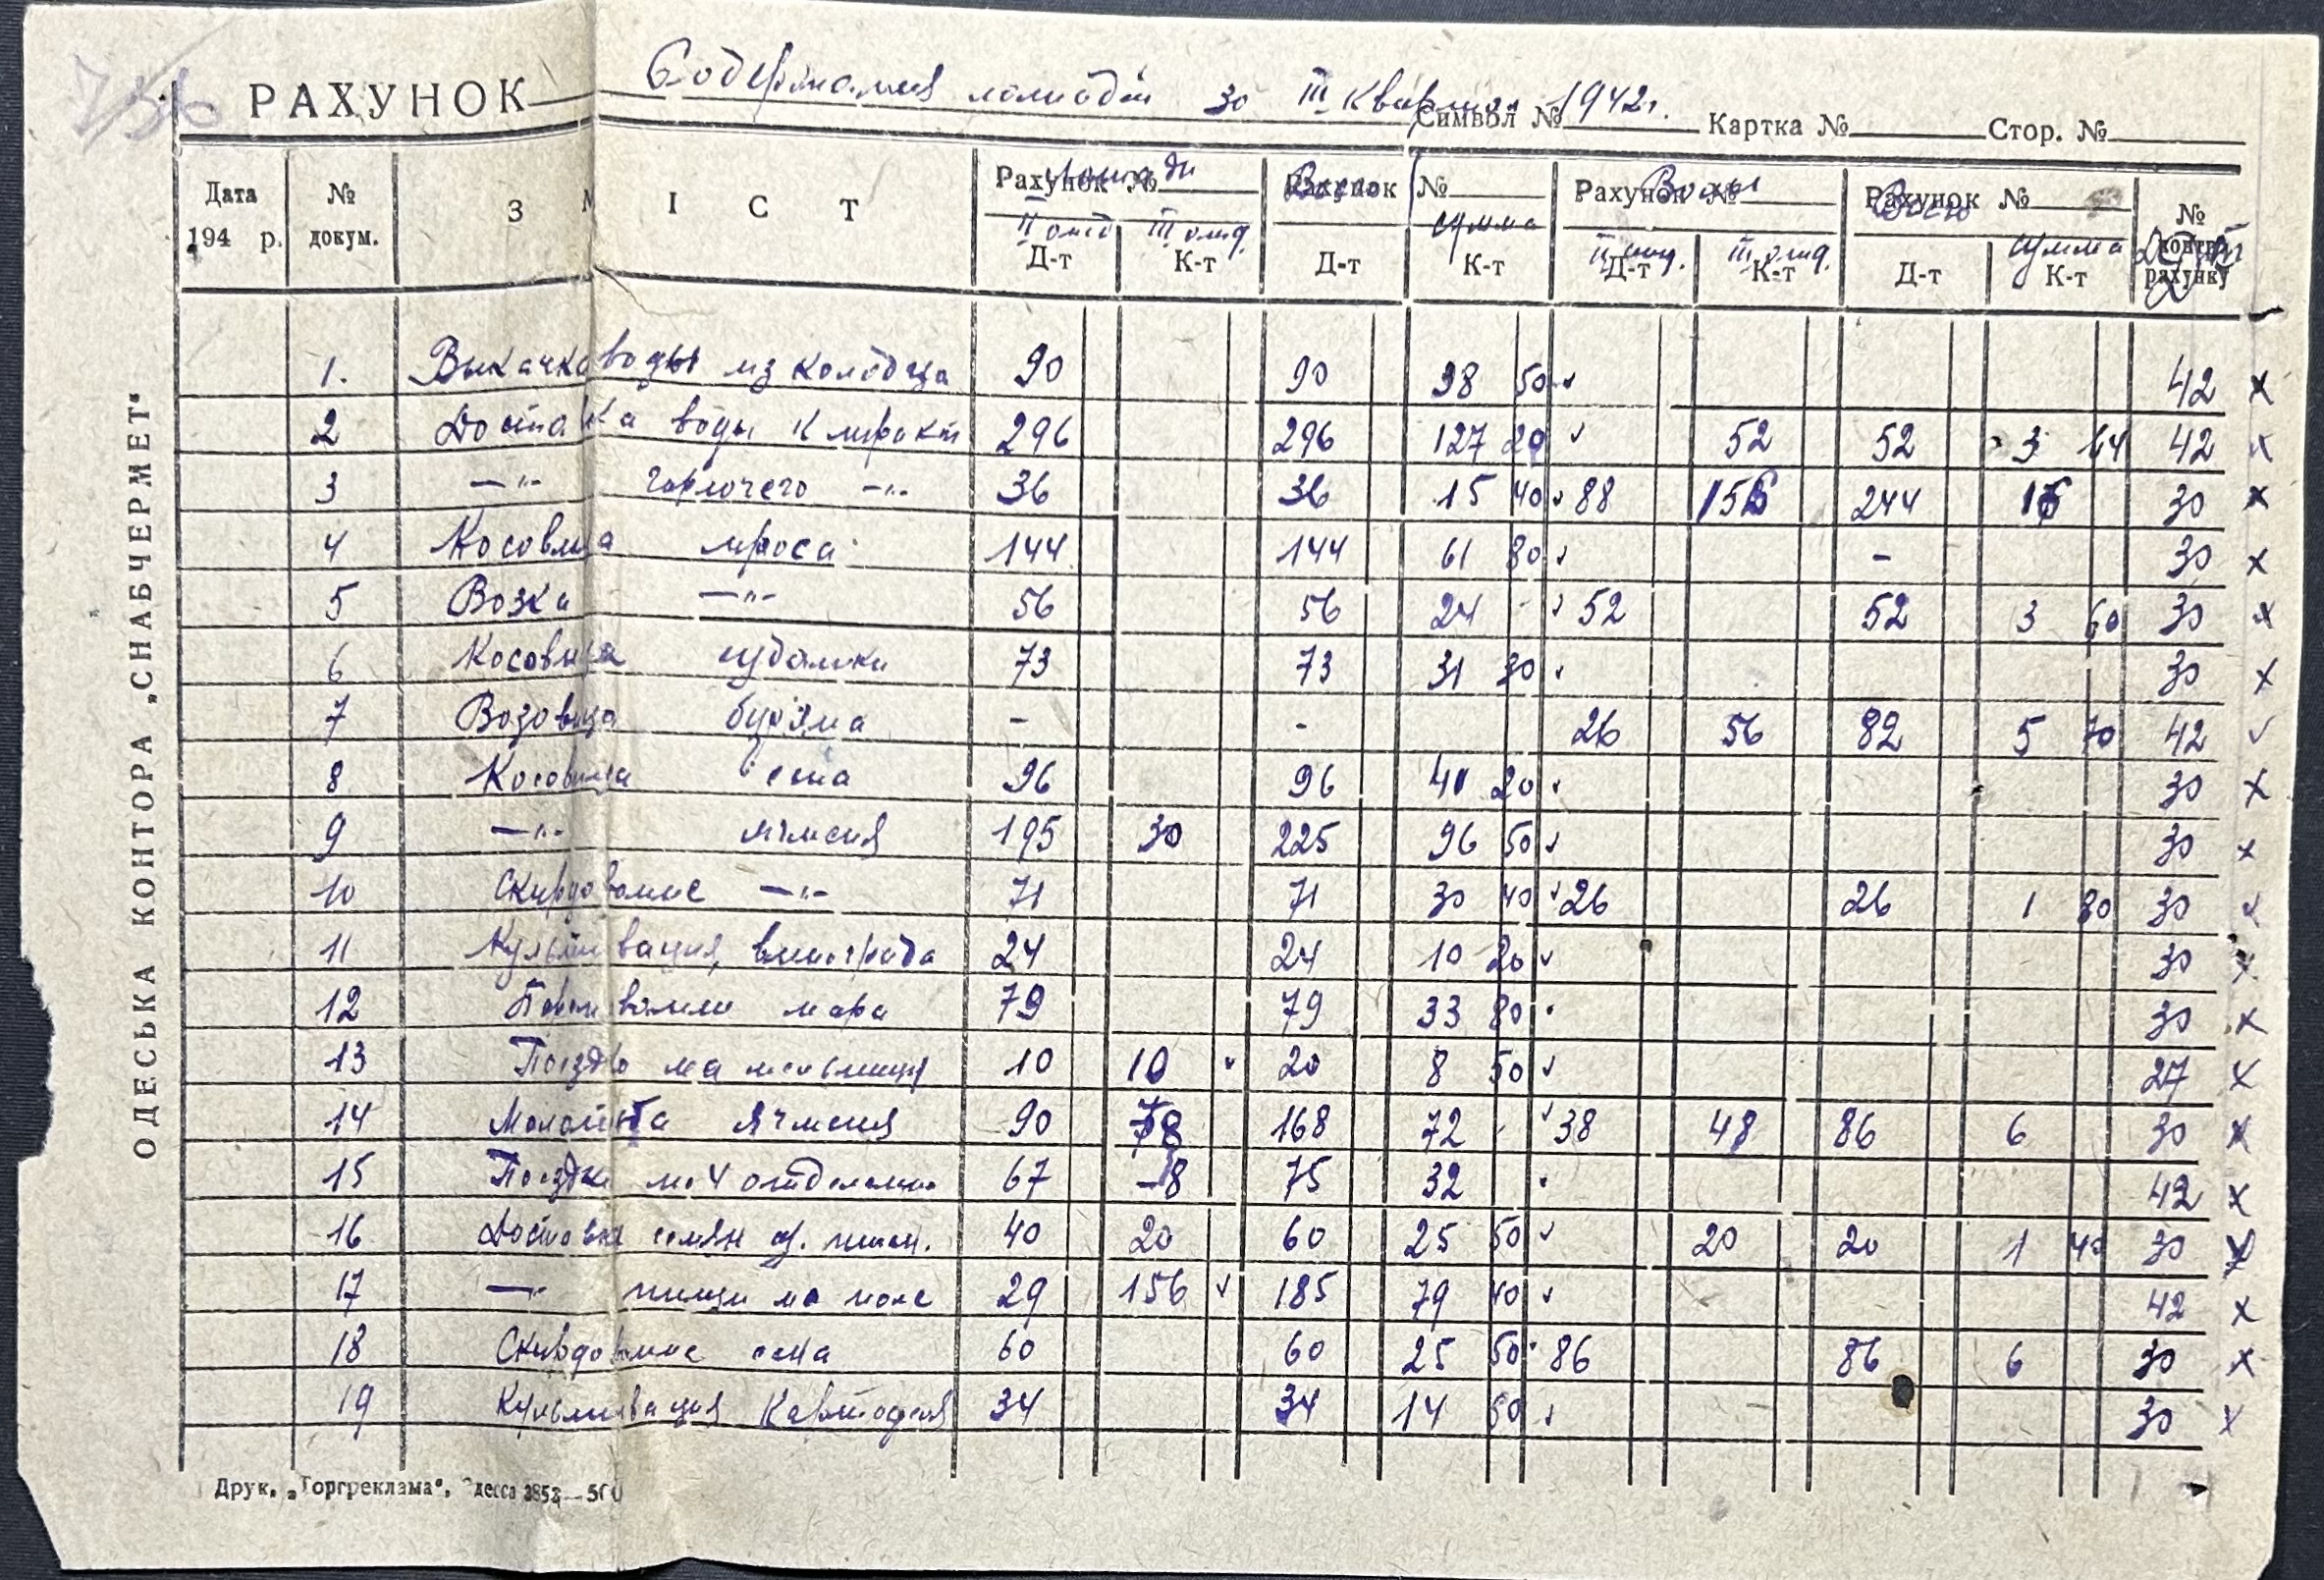 736
РАХУНОК Содержания лошадей за III квартал 1942г.
Символ № Картка № Стор. №
Дата 194 р. № докум. ЗМІСТ Рахунок № Лошади Рахунок № Всего Рахунок № Волы Рахунок № Всего № контр. рахунку
II отд III отд. сумма II отд. III отд. сумма
Д-т К-т Д-т К-т Д-т К-т Д-т К-т
1. Выкачка воды из колодца 90 90 38 50 42 x
2 Доставка воды к тракт 296 296 127 20 52 52 3 64 42 x
3 —"— горючего —"— 36 36 15 40 88 156 244 16 30 x
4 Косовица проса 144 144 61 80 - 30 x
5 Возка —"— 56 56 24 - 52 52 3 60 30 x
6 Косовица суданки 73 73 31 30 30 x
7 Возовица бурьяна - - 26 56 82 5 70 42
8 Косовица сена 96 96 41 20 30 x
9 —"— ячменя 195 30 225 96 50 30 x
10 Скирдование —"— 71 71 30 40 26 26 1 80 30
11 Культивация винограда 24 24 10 20 30 x
12 пара 79 79 33 80 30 x
13 Поездка на мельницу 10 10 20 8 50 27 x
14 Молотьба ячменя 90 78 168 72 - 38 48 86 6 30 x
15 Поездки на 4 отделение 67 8 75 32 42 x
16 Доставка семян оз. пшен. 40 20 60 25 50 20 20 1 40 30 x
17 —"— пищи на поле 29 156 185 79 40 42 x
18 Скирдование сена 60 60 25 50 86 86 6 30 x
19 Культивация картофеля 34 34 14 50 30 x
ОДЕСЬКА КОНТОРА „СНАБЧЕРМЕТ"
Друк. „Торгреклама", Одесса 3853—500